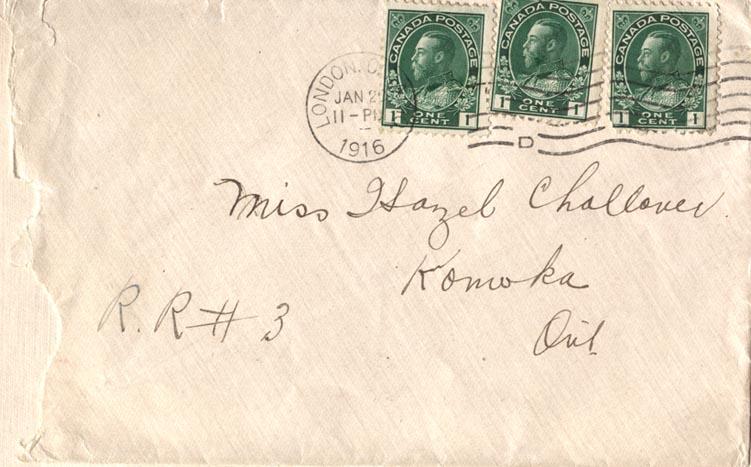 CANADA POSTAGE
1 ONE CENT 1
CANADA POSTAGE
1 ONE CENT 1
CANADA POSTAGE
1 ONE CENT 1
LONDON.
JAN
11-P
1916
D
Miss Hazel Challover
Komoka
R.R # 3
Ont